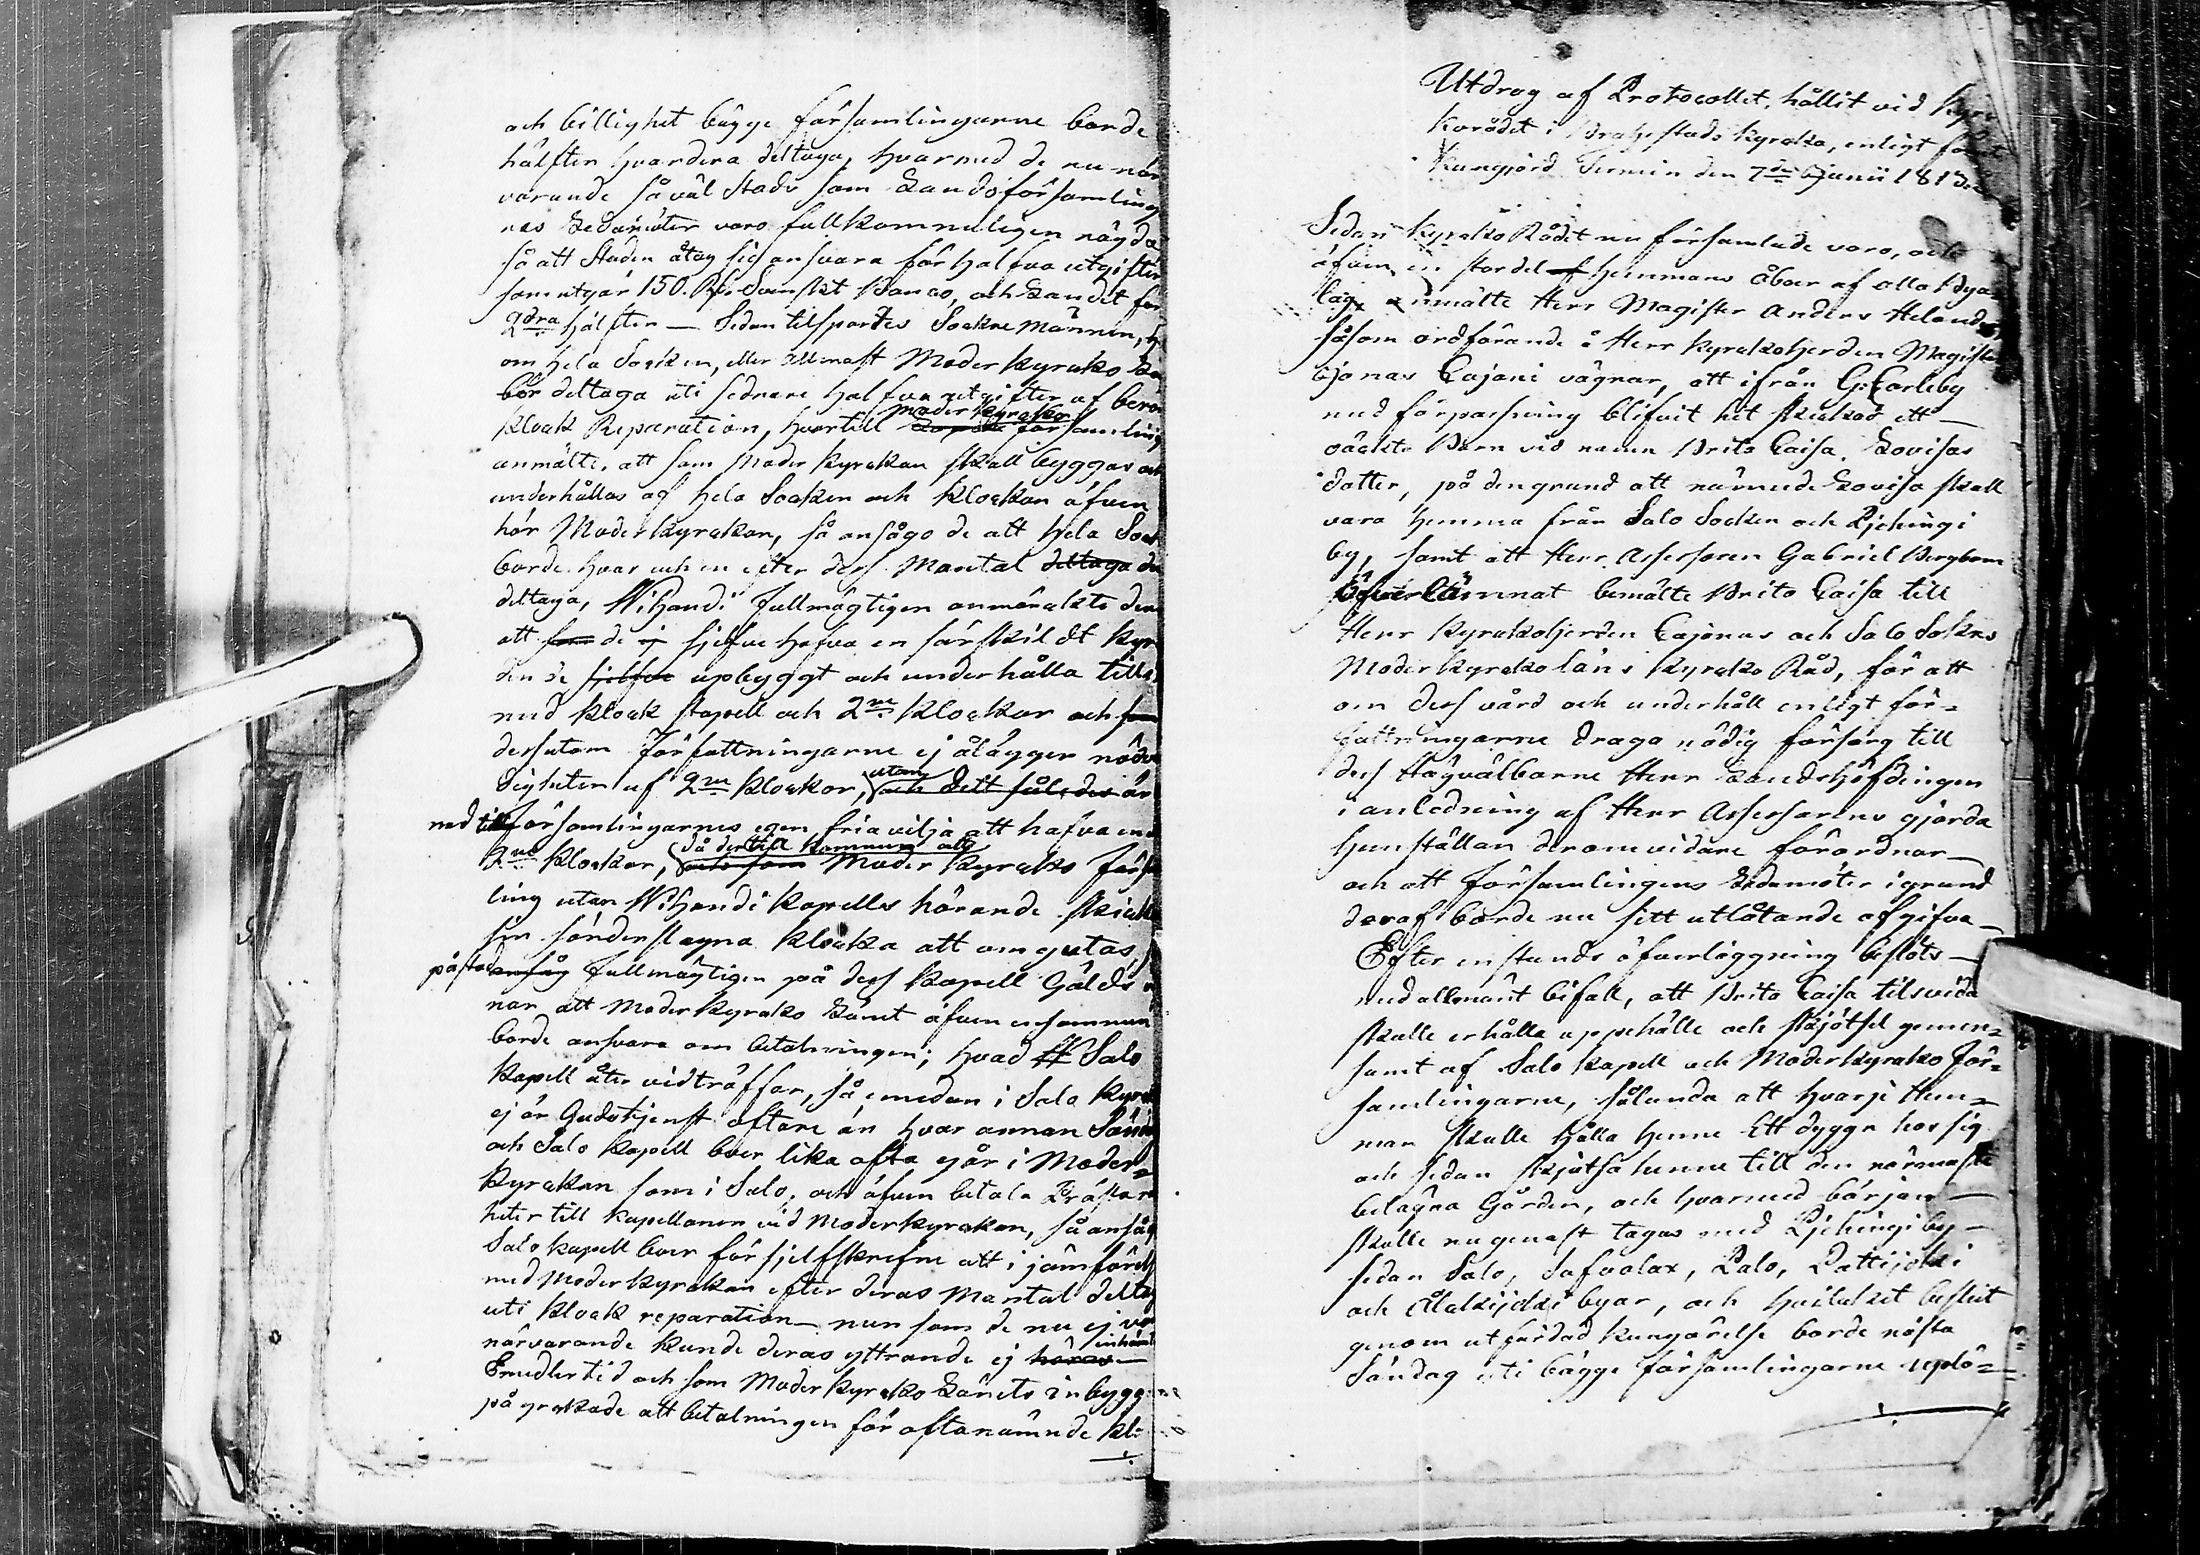 och billighet bägge församlingarne borde
hälften hvardera deltaga, hvarmed de nu när
varande så väl Stads som Landsförsamling
nes Ledamöter voro fullkommeligen nögda
så att Staden åtog sig ansvara för halfva utgiften
som utgör 150. Rd. Svenskt Banco, och Landet för
2dra hälften — Sedan tilspordes Sockne männen,
om hela Socken, eller allenast Moder kyrko
bör deltaga uti sednare halfva utgiften af berör
Klock Reparation, hvartill Moder kyrko församling
anmälte, att som Moder kyrkan skall byggas och
underhållas af hela Socken och klockan äfven
hör Moderkyrkan, så ansågo de att hela Sock
borde hvar och en efter dess Mantal deltaga
deltaga, Wihandi Fullmägtigen anmärckte
att som de ej sjelfve hafva en särskildt kyr
den de sjelfve upbyggt och underhålla tills
med klock stapell och 2ne klockor och som
dessutom författningarne ej ålägger nödv
digheten af 2ne klockor, utan och dett således är
med till Församlingarnes egen fria vilja att hafva en
2ne klockor, då dertill kommer att och som Moder kyrko förs
ling utan Wihandi kapells hörande skick
sin sönderslagna klocka att omgutas,
påstod ansåg Fullmägtigen på dess kapell Gålds
nar att Moder kyrko Länet äfven ensammen
borde ansvara om betalningen; hvad Salo
Kapell åter vidträffar, så emedan i Salo kyrk
ej är Gudstjenst oftare än hvar annan Sönd
och Salo kapell boer lika ofta går i Moder=
kyrkan som i Salo, och äfven betala Präster
heter till kapellanen vid Moderkyrkan, så ansåg
Salo kapell boer för sjelfskrefne att i jämförels
med Moderkyrkan efter deras Mantal deltag
uti klock reparation — men som de nu ej vo
närvarande kunde deras yttrande ej höras — inhämt
Emedlertid och som Moder kyrko Länets inbygg
påyrkade att betalningen för oftanämnde klo
Utdrag af Protocollet, hållit vid Kyr
korådet i Brahestads kyrka, enligt för
kungjord Termin den 7de Junii 1813
Sedan Kyrko Rådet nu församlade voro, och
äfven en stor del af Hemmans åboer af alla bya=
lag, anmälte Herr Magister Anders Helander,
såsom ordförande å Herr Kyrkoherden Magister
Jonas Cajani vägnar, att ifrån G: Carleby
med förpassning blifvit hit skickad ett —
oäckta Barn vid namn Brita Caisa Lovisas
dotter, på den grund att nämnde Lovisa skall
vara hemma från Salo Socken och Pjehingi
by, samt att Herr Assessoren Gabriel Bergbom
öfverlämnat bemälte Brita Caisa till
Herr Kyrkoherden Cajanus och Salo Sokns
Moderkyrkoläns Kyrko Råd, för att
om dess vård och underhåll enligt för=
fattningarne draga nödig försorg till
dess Högvälborne Herr Landshöfdingen
i anledning af Herr Assessorens gjorda
hemställan derom vidare förordnar —
och att församlingens Ledamöter i grund
deraf borde nu sitt utlåtande afgifva —
Efter en stunds öfverläggning beslöts —
med allmänt bifall, att Brita Caisa tilsvida
skulle erhålla uppehälle och skjötsel gemen=
samt af Salo kapell och Moderkyrko För=
samlingarne, sålunda att hvarje Hem=
man skulle hålla henne Ett dygn hos sig
och sedan skjutsa henne till den närmaste
belägna Gården, och hvarmed början —
skulle nu genast tagas med Pjehingi by —
sedan Salo, Safvolax, Palo, Pattijoki
och Olkijoki byar, och hvilcket beslut
genom utfärdad kungörelse borde nästa
Söndag uti bägge församlingarne uplä=